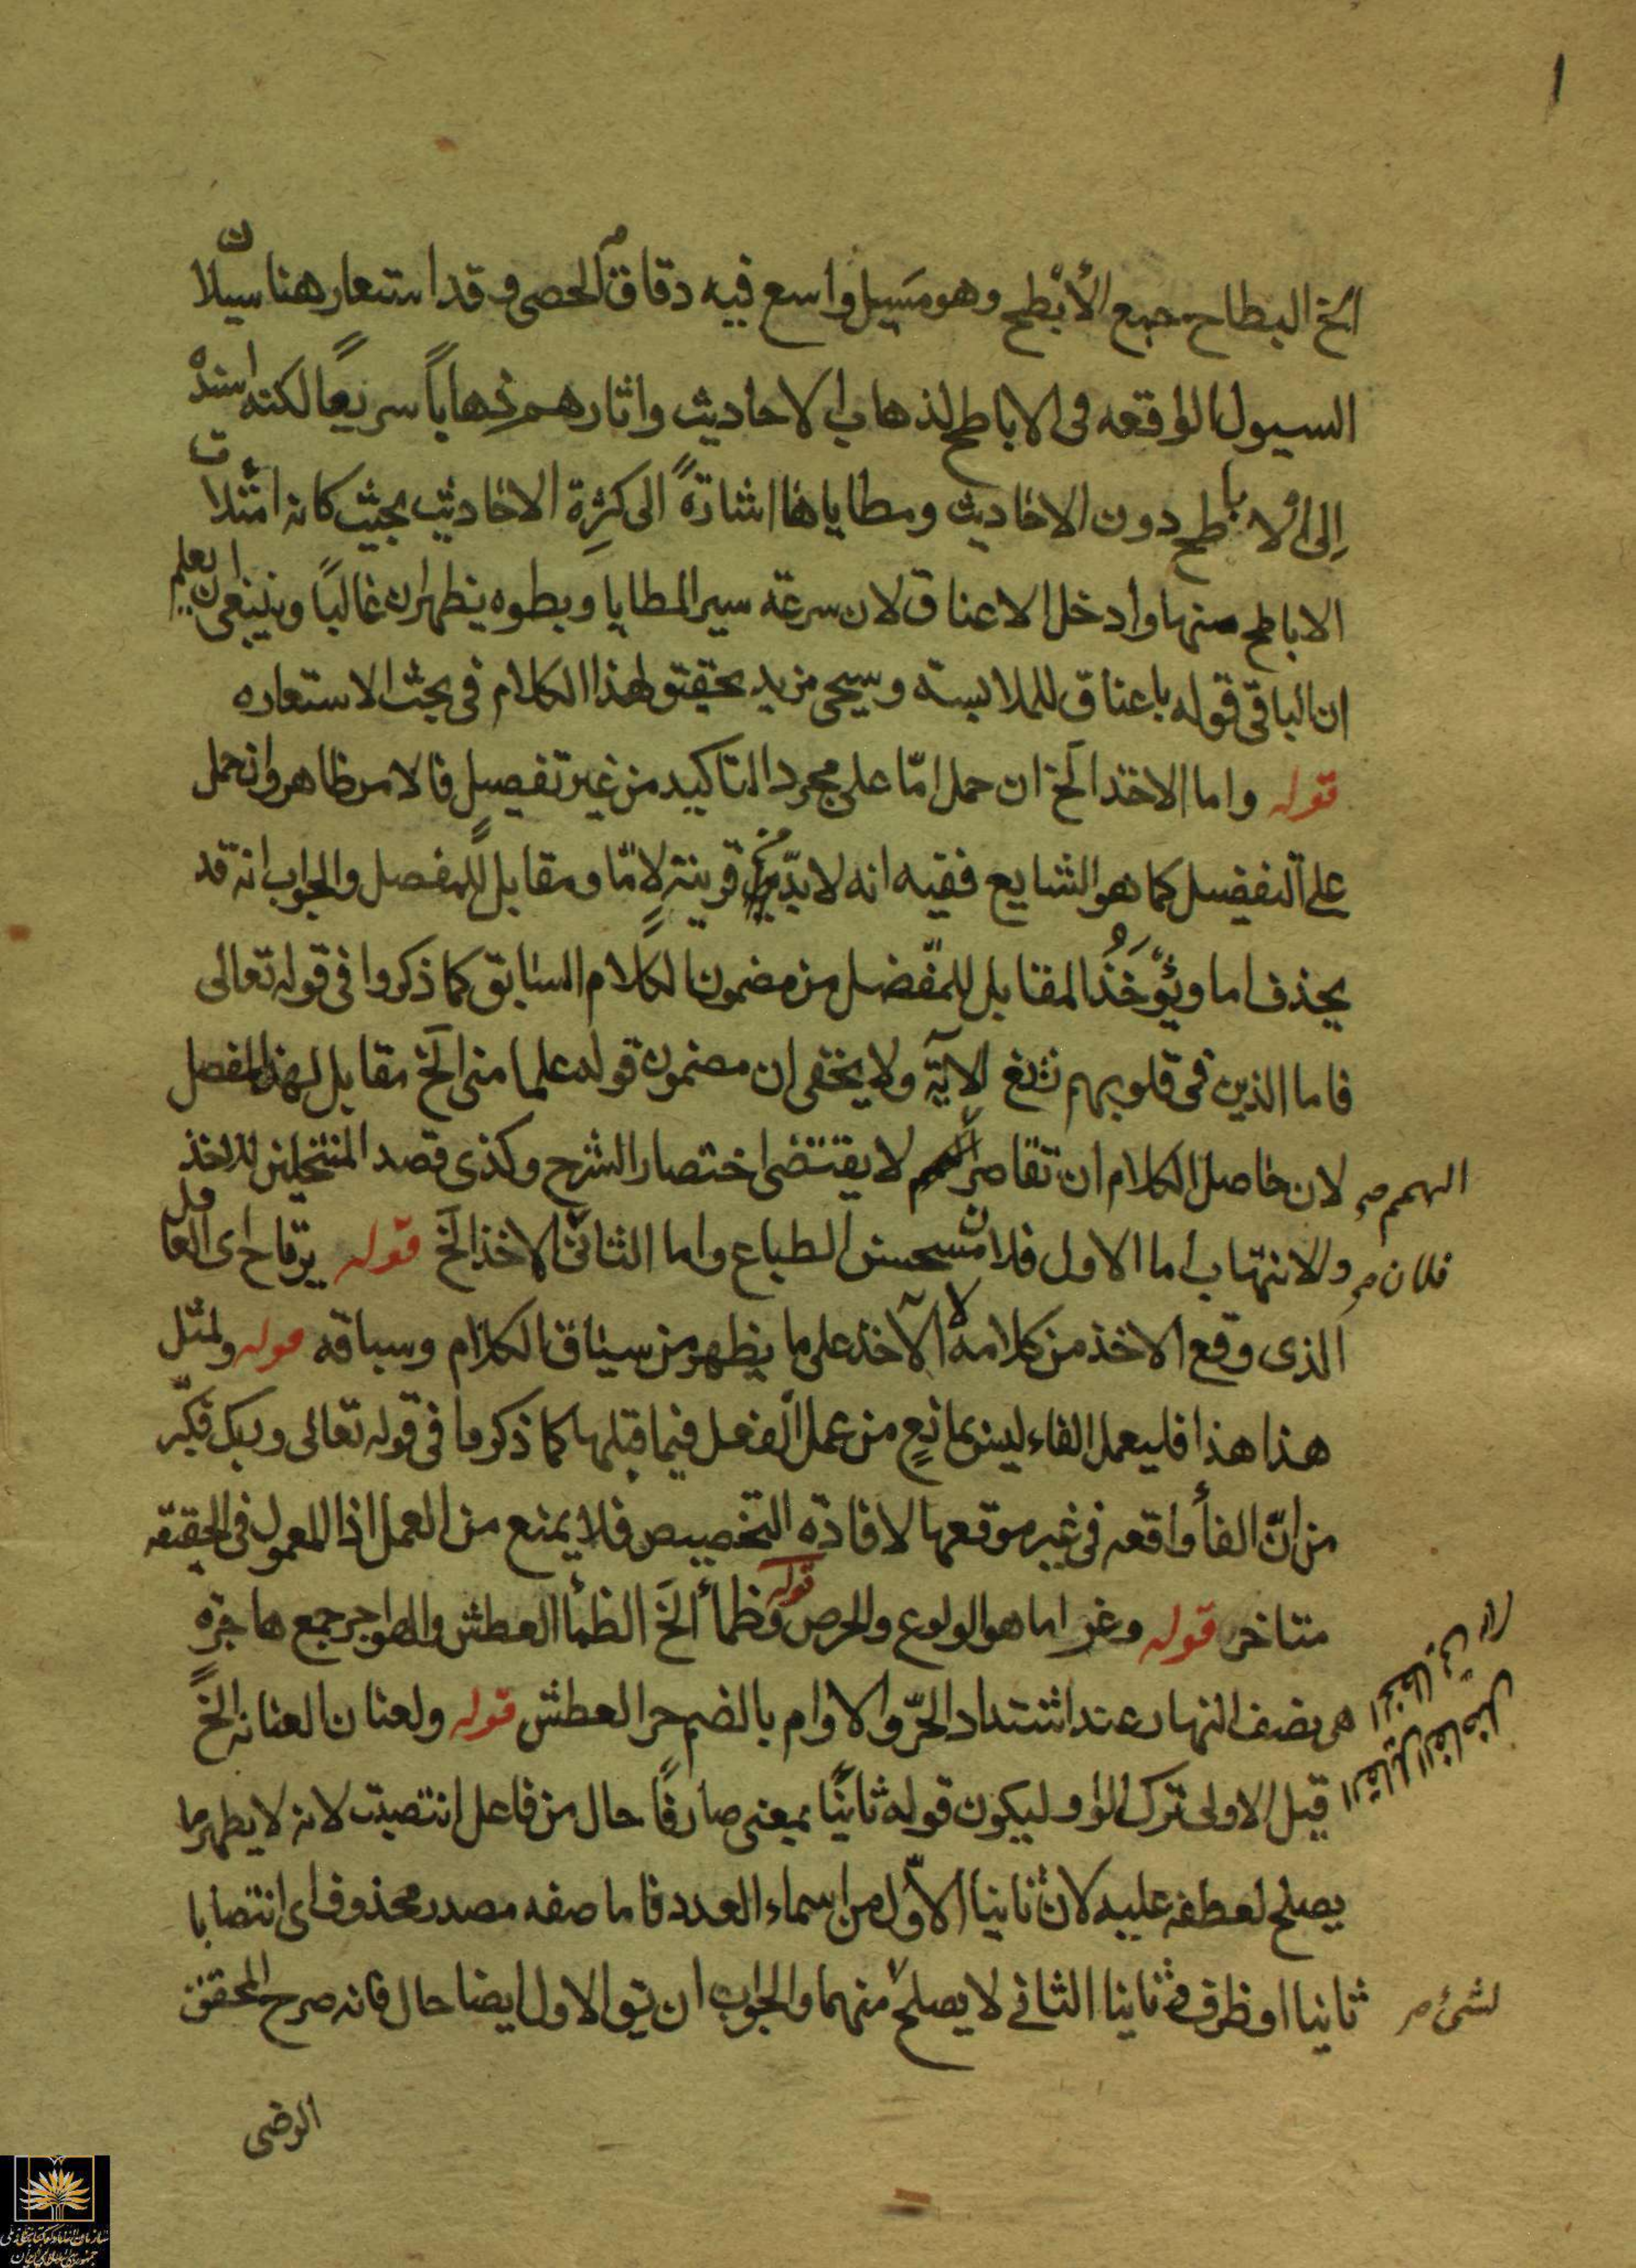 الخ البطاح جمع الأبطح وهو مسيل واسع فيه دقاق الحصى وقد استعار هنا سيلان
السيول الواقعه فى الاباطح لذهاب الاحاديث واثارهم ذهاباً سريعًا لكنه اسنده
إلى الاباطح دون الاحاديث ومطاياها اشارةً الى كثرة الاحاديث بحيث كانه امتلات
الاباطح منها وادخل الاعناق لان سرعة سير المطايا وبطوه يظهران غالبًا وينبغى ان يعلم
ان الباقى قوله باعناق للملابسة وسيجى مزيد تحقيق لهذا الكلام فى بحث الاستعاره
قوله واما الاخذ الخ ان حمل امّا على مجرد التاكيد من غير تفصيل فالامر ظاهر وان حمل
على التفصيل كما هو الشايع ففيه انه لا بدّ من قرينة لامّا ومقابل للمفصل والجواب انه قد
يحذف اما ويؤخذ المقابل للمفصل من مضمون الكلام السابق كما ذكروا فى قوله تعالى
فاما الذين فى قلوبهم زيغ الآية ولا يخفى ان مضمون قوله علما منى الخ مقابل لهذا المفصل
لان حاصل الكلام ان تقاصر الهمم لا يقتضى اختصار الشرح وكذى قصد المنتحلين للاخذ
والانتهاب اما الاول فلان مستحسن الطباع واما الثانى فلان الاخذ الخ قوله يرتاح اى الفاضل
الذى وقع الاخذ من كلامه لا الآخذ على ما يظهر من سياق الكلام وسباقه قوله ولمثل
هذا هذا فليعمل الفاء ليس بمانع من عمل الفعل فيما قبلها كما ذكروا فى قوله تعالى وربك فكبّر
من انّ الفأ واقعه فى غير موقعها لافادة التخصيص فلا يمنع من العمل اذ المعمول فى الحقيقه
متاخر قوله وغراما هو الولوع والحرص قوله وظمأ الخ الظمأ العطش والهواجر جمع هاجره
هى نصف النهار عند اشتداد الحرّ والاوام بالضم حر العطش قوله ولعنان العنايه الخ
قيل الاولى ترك الواو ليكون قوله ثانيًا بمعنى صارفًا حال من فاعل انتصبت لانه لا يظهر ما
يصلح لعطفه عليه لان ثانيا الاوّل من اسماء العدد فاما صفه مصدر محذوف اى انتصابا
ثانيا او ظرف وثانيا الثانى لا يصلح لشئ منهما والجواب ان يق الاول ايضا حال فانه صرح المحقق
الرضى